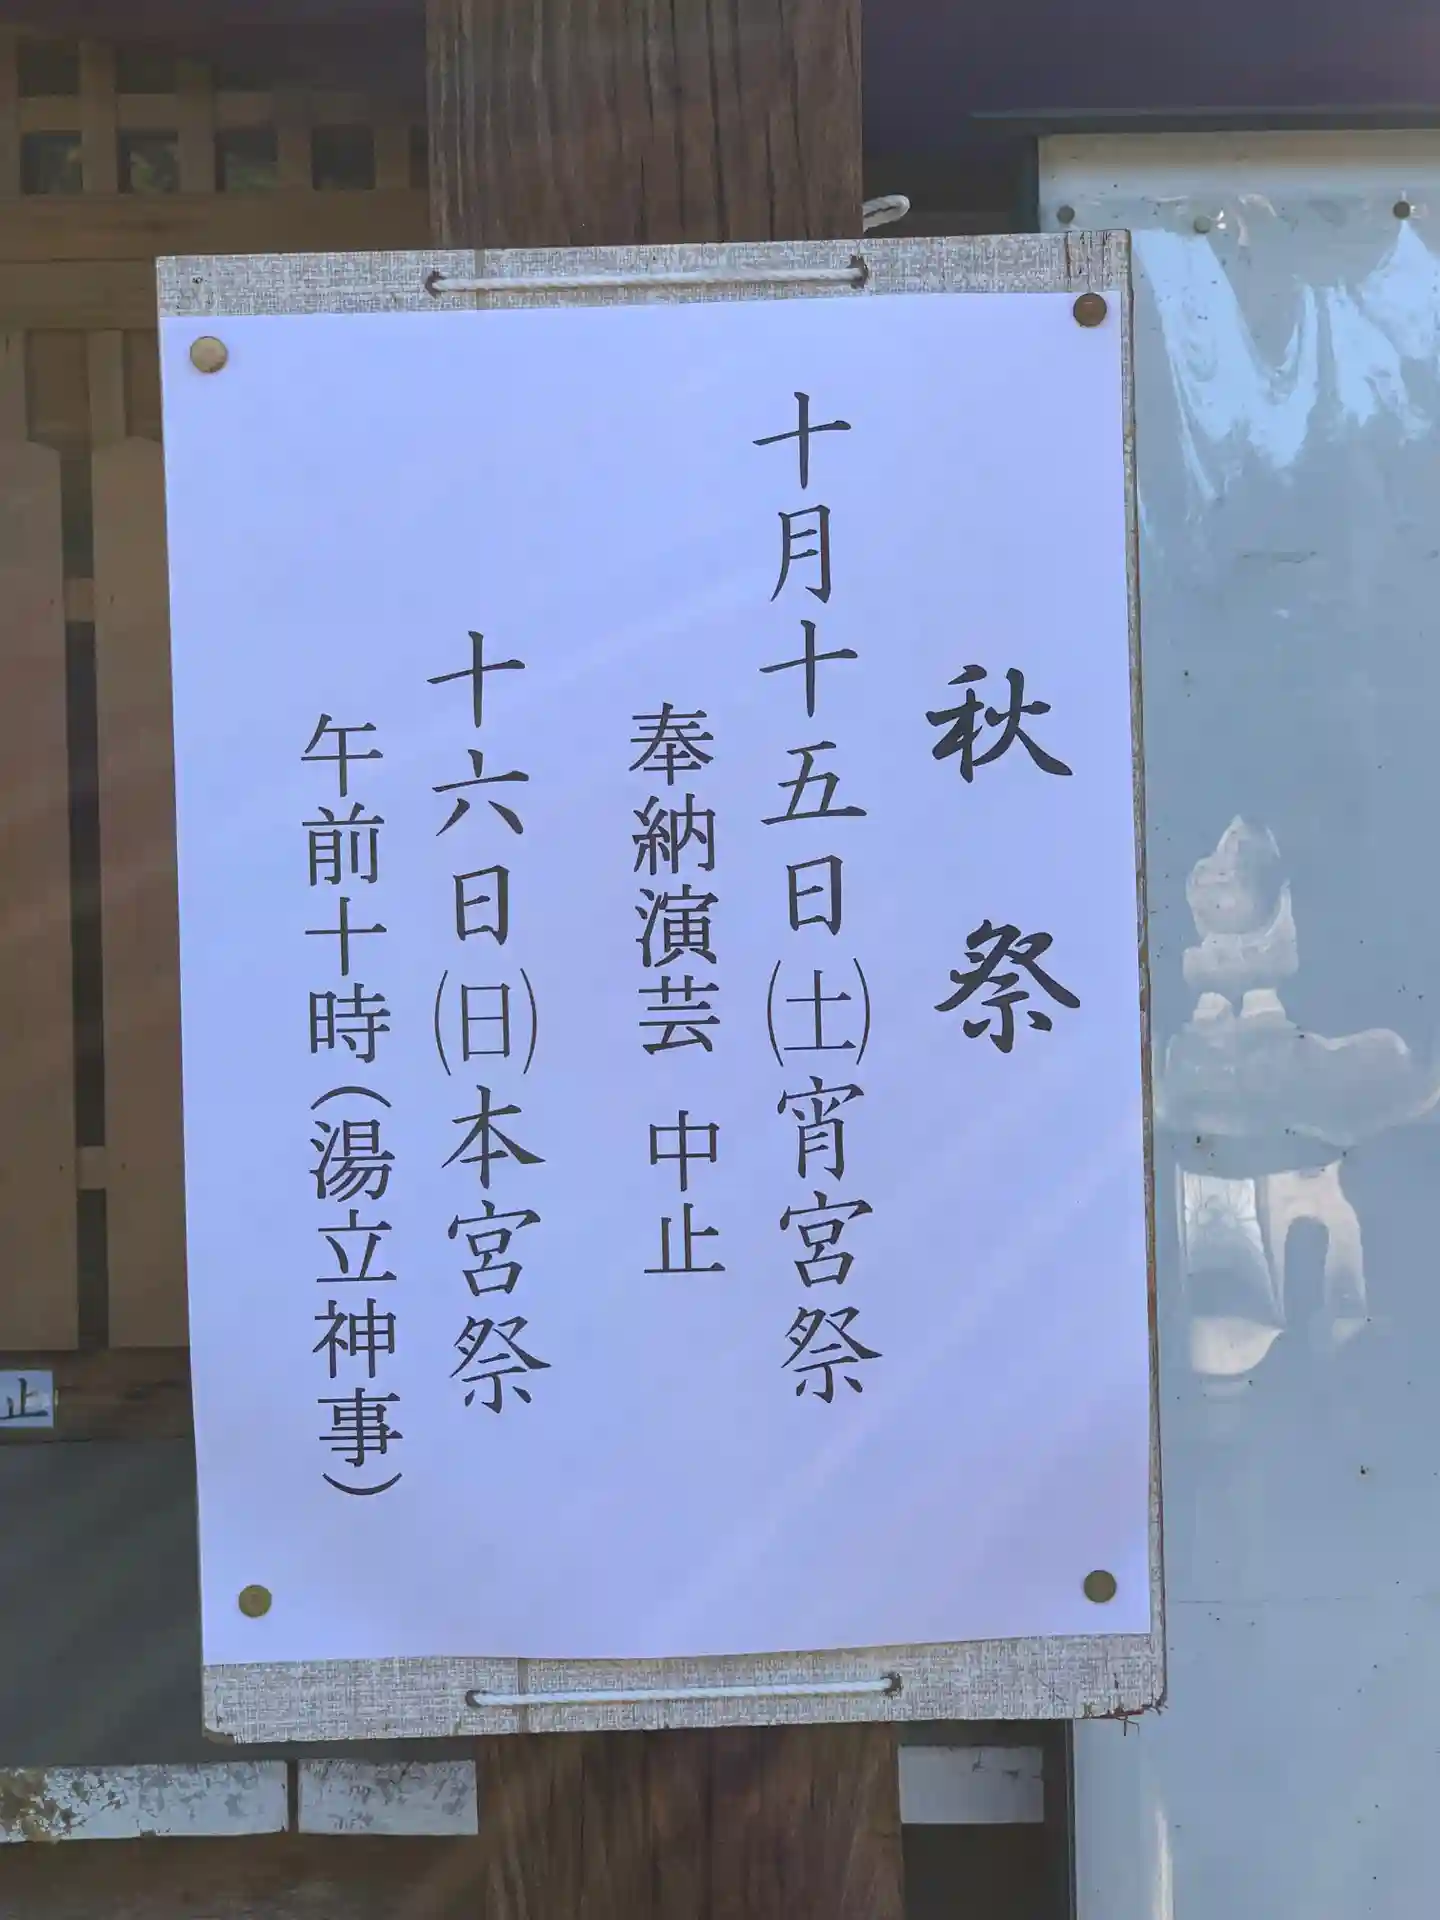 秋祭
十月十五日(土)宵宮祭
奉納演芸 中止
十六日(日)本宮祭
午前十時(湯立神事)
止